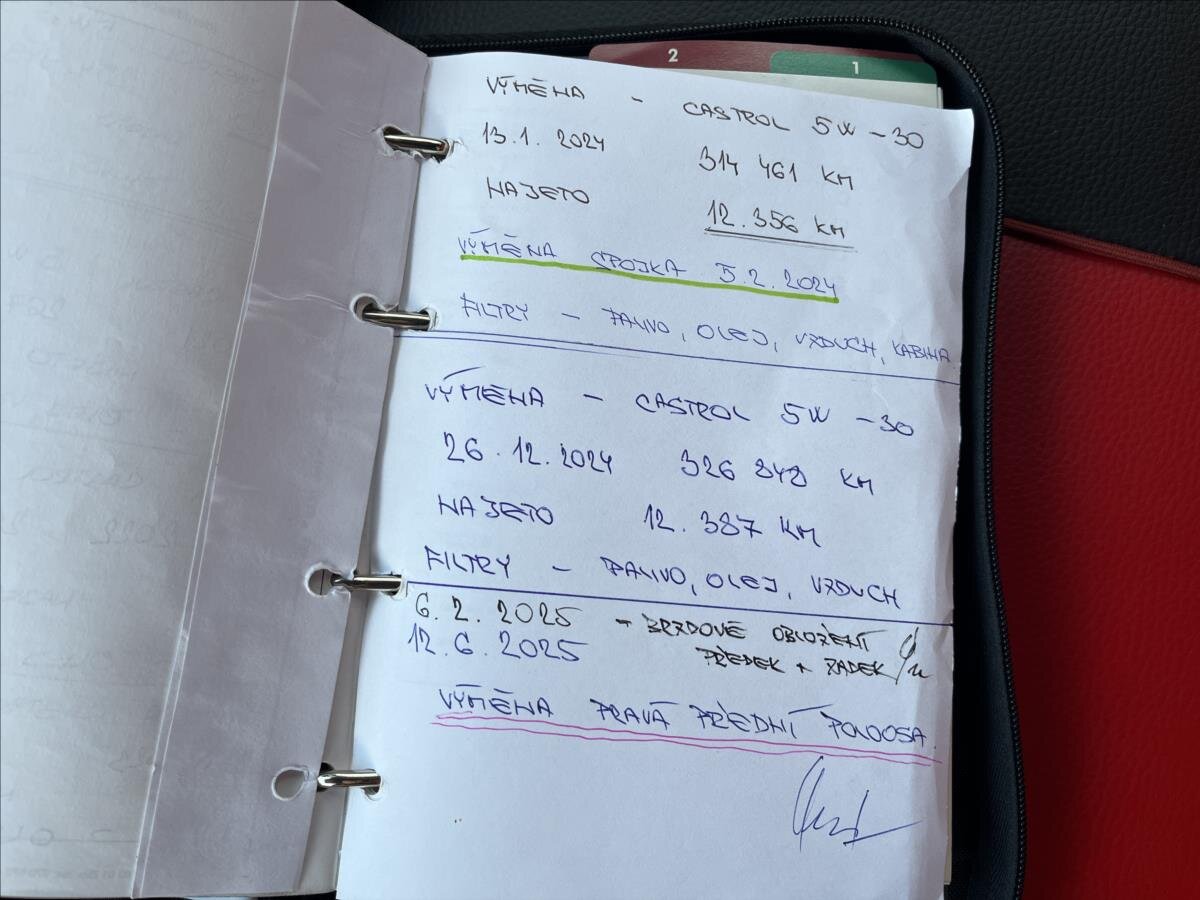 2
1
VÝMĚNA - CASTROL 5W-30
13.1. 2024 314 461 KM
NAJETO 12.356 KM
VÝMĚNA SPOJKA 5.2.2024
FILTRY - PALIVO, OLEJ, VZDUCH, KABINA
VÝMĚNA - CASTROL 5W-30
26.12.2024 326 848 KM
NAJETO 12.387 KM
FILTRY - PALIVO, OLEJ, VZDUCH
6.2.2025 - BRZDOVÉ OBLOŽENÍ
PŘEDEK + ZADEK
12.6.2025
VÝMĚNA PRAVÁ PŘEDNÍ POLOOSA.